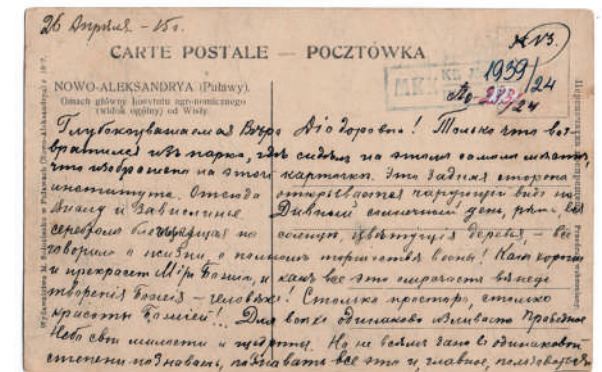 26 Апрѣля - 15 г.
CARTE POSTALE — POCZTÓWKA
NOWO-ALEKSANDRYA (Puławy).
Gmach główny Instytutu agronomicznego
(widok ogólny) od Wisły.
1939/24
24
Глубокоуважаемая Вѣра Діодоровна! Только что воз-
вратился изъ парка, гдѣ сидѣлъ на этомъ самомъ мѣстѣ,
что изображено на этой карточкѣ. Это задняя сторона
института. Отсюда открывается чарующій видъ на
Вислу и Завислинье. Дивный солнечный день, рѣка,
серебромъ блестящая на солнцѣ, цвѣтущія деревья, – все
говорило о жизни, о полномъ торжествѣ весны! Какъ хорошъ
и прекрасенъ Міръ Божій, и какъ все это омрачаетъ вѣнецъ
творенія Божія – человѣкъ! Столько простора, столько
красоты Божіей!.. Для всѣхъ одинаково Праведное
Небо свои милости и щедроты. Но не всѣмъ дано въ одинаковой
степени познавать, познавать все это и, главное, пользоваться